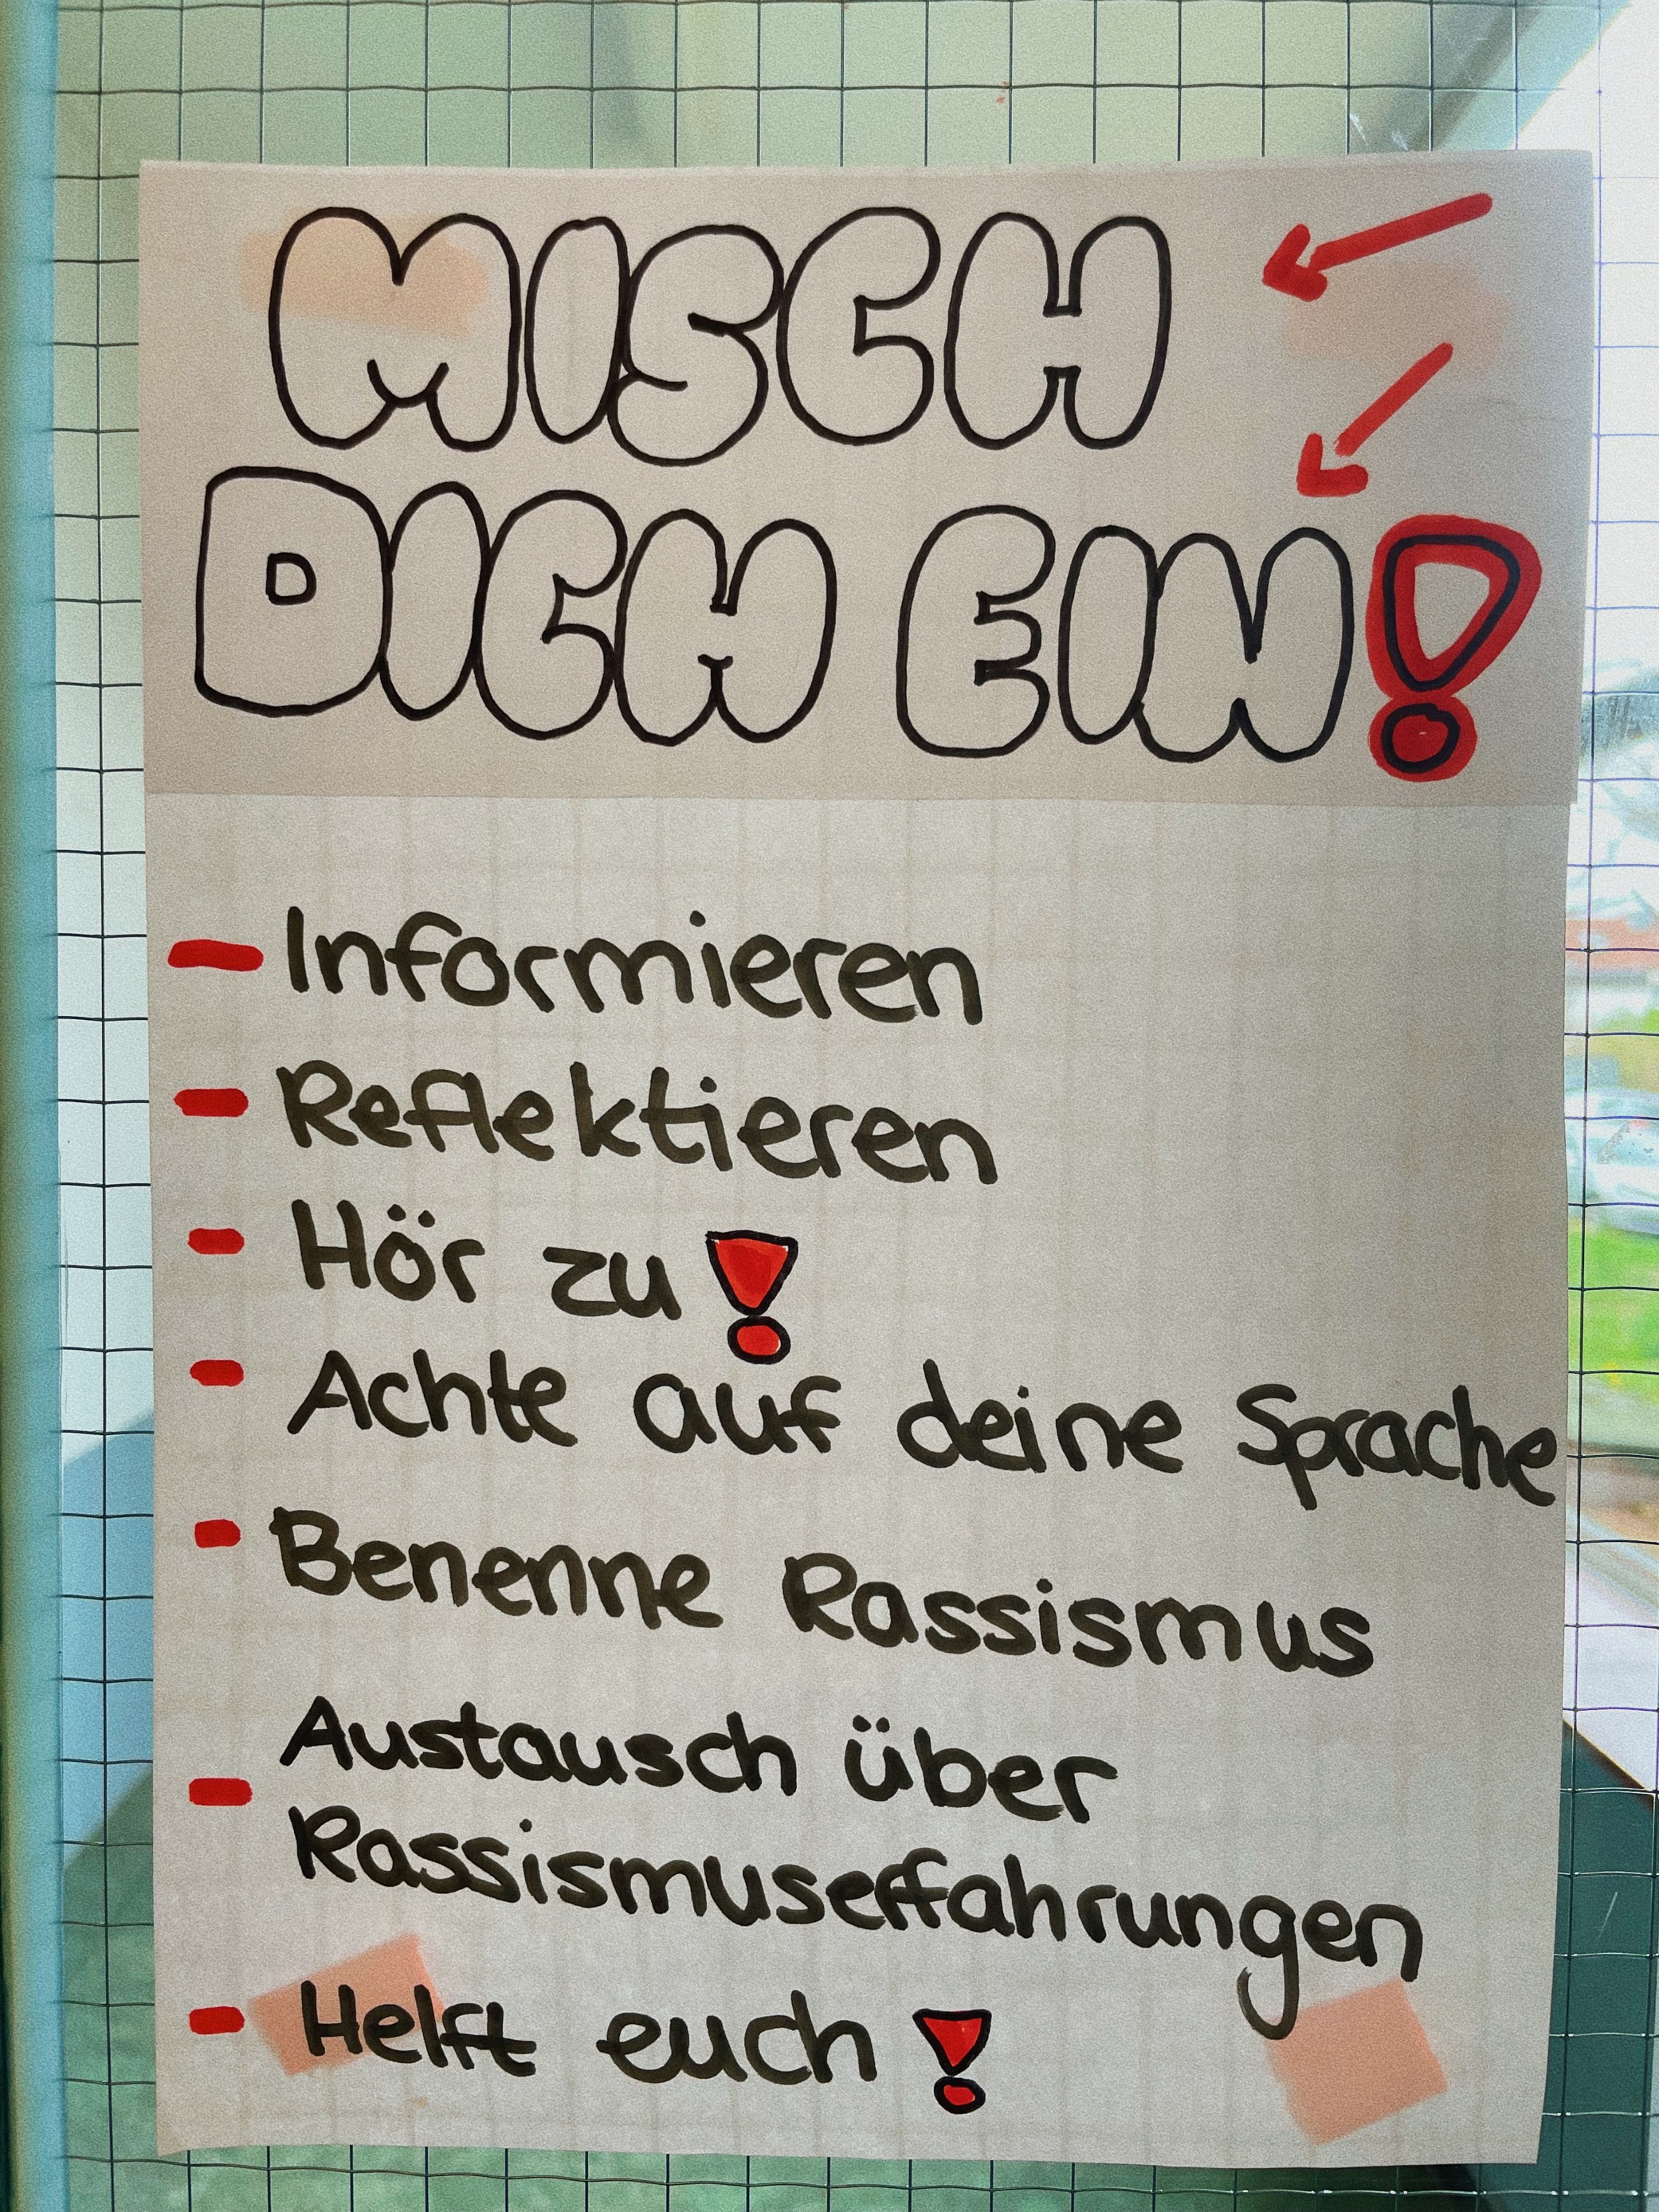 MISCH
DICH EIN!
- Informieren
- Reflektieren
- Hör zu!
- Achte auf deine Sprache
- Benenne Rassismus
- Austausch über
Rassismuserfahrungen
- Helft euch!